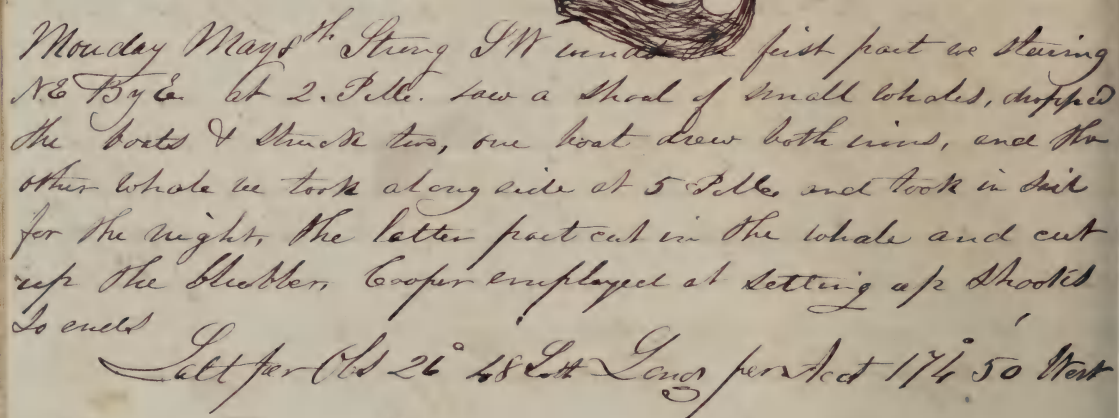 Monday May 8th Strong SW winds the first part we stering
NE By E. at 2. P.M. saw a shoal of small whales, dropped
the boats & struck two, one boat drew both irons, and the
other whale we took along side at 5 P.M. and took in sail
for the night, the latter part cut in the whale and cut
up the blubber, Cooper employed at setting up shooks
So ends
Latt per Obs 26° 48 Long per Acct 174° 50' West